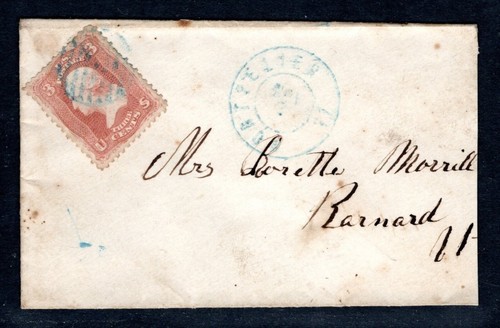 3 3
POSTAGE
U THREE S
CENTS
MONTPELIER
Mrs Lorette Morrill
Barnard
Vt